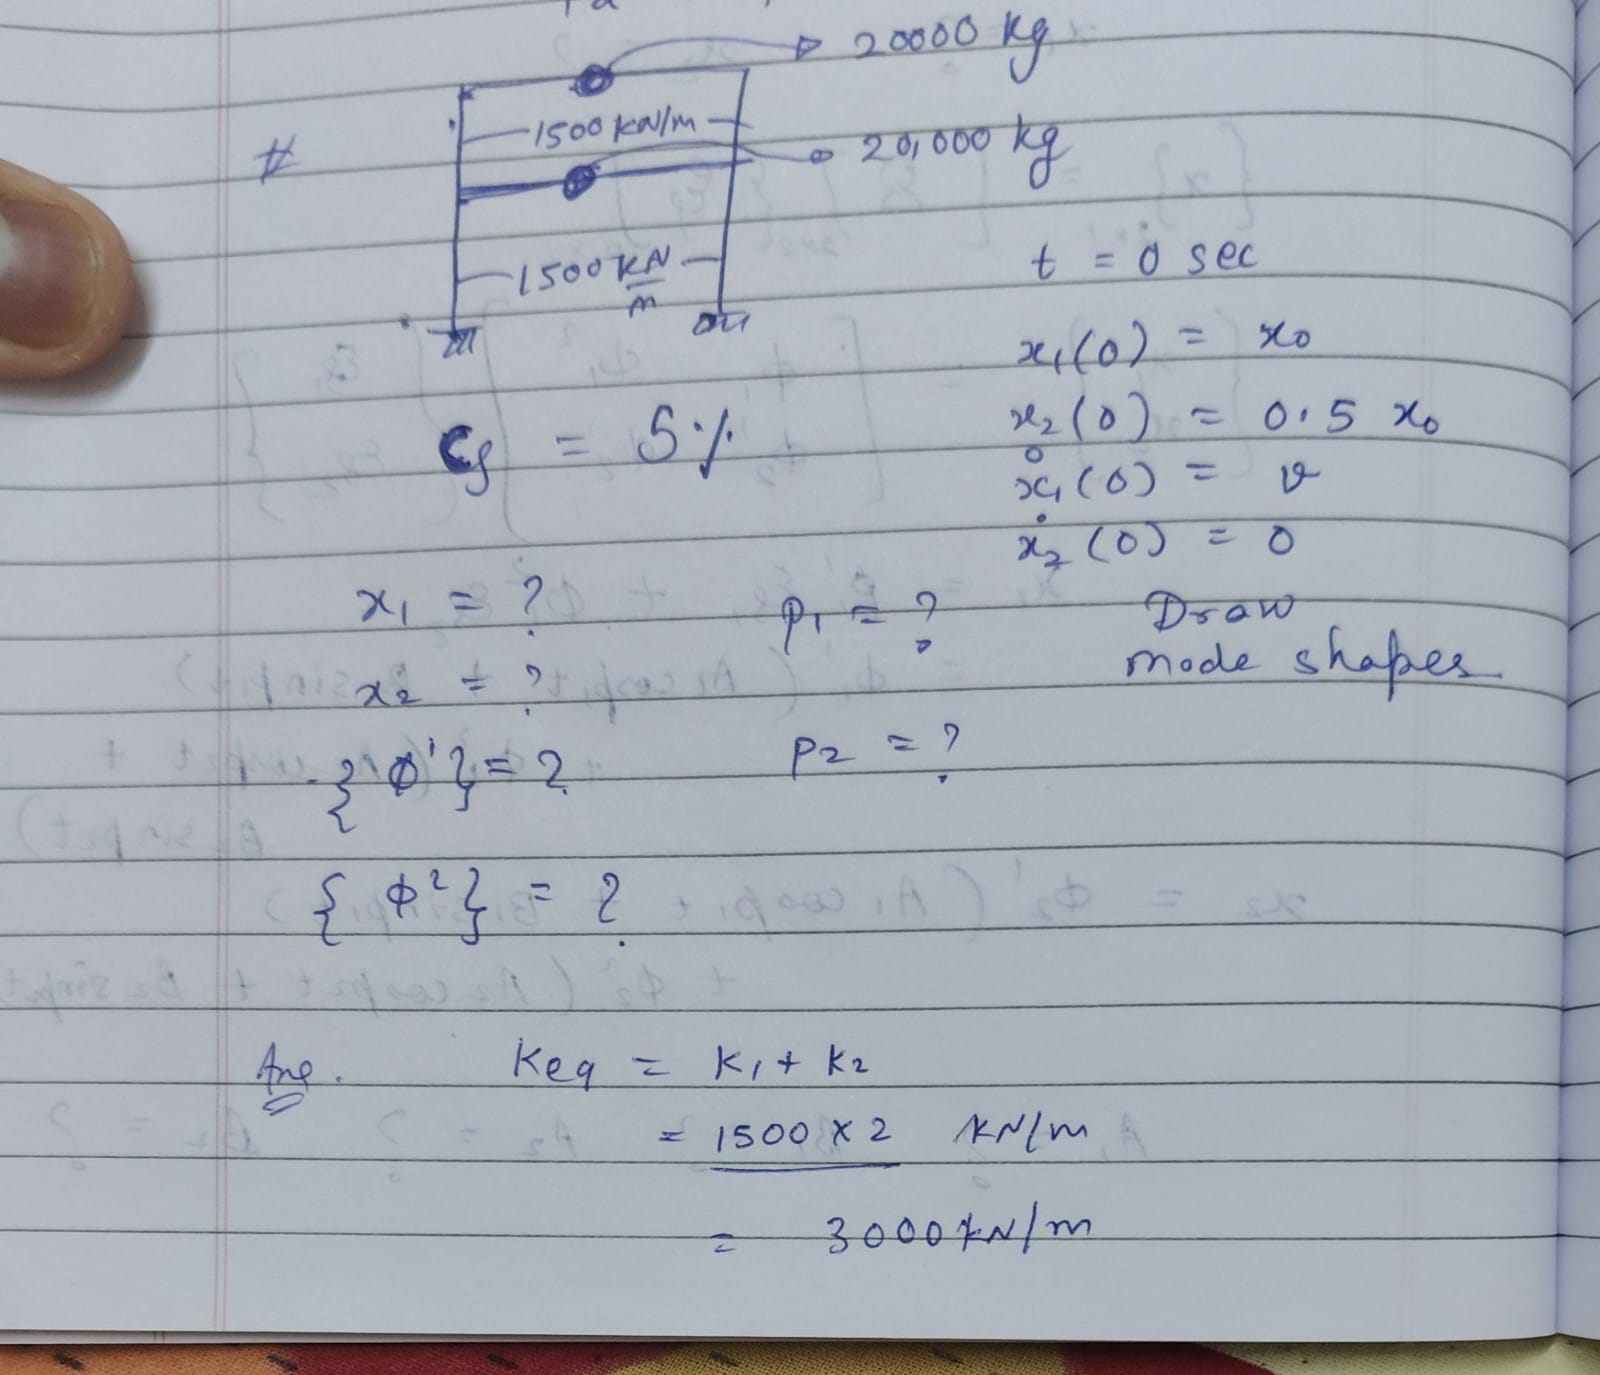 20000 kg
1500 kN/m
# 20,000 kg
1500 kN/m
t = 0 sec
x₁(0) = x₀
ζ = 5% x₂(0) = 0.5 x₀
ẋ₁(0) = v
ẋ₂(0) = 0
x₁ = ? p₁ = ? Draw
x₂ = ? mode shapes
{ϕ¹} = ? p₂ = ?
{ϕ²} = ?
Ans. Keq = K₁ + K₂
= 1500 x 2 KN/m
= 3000 KN/m